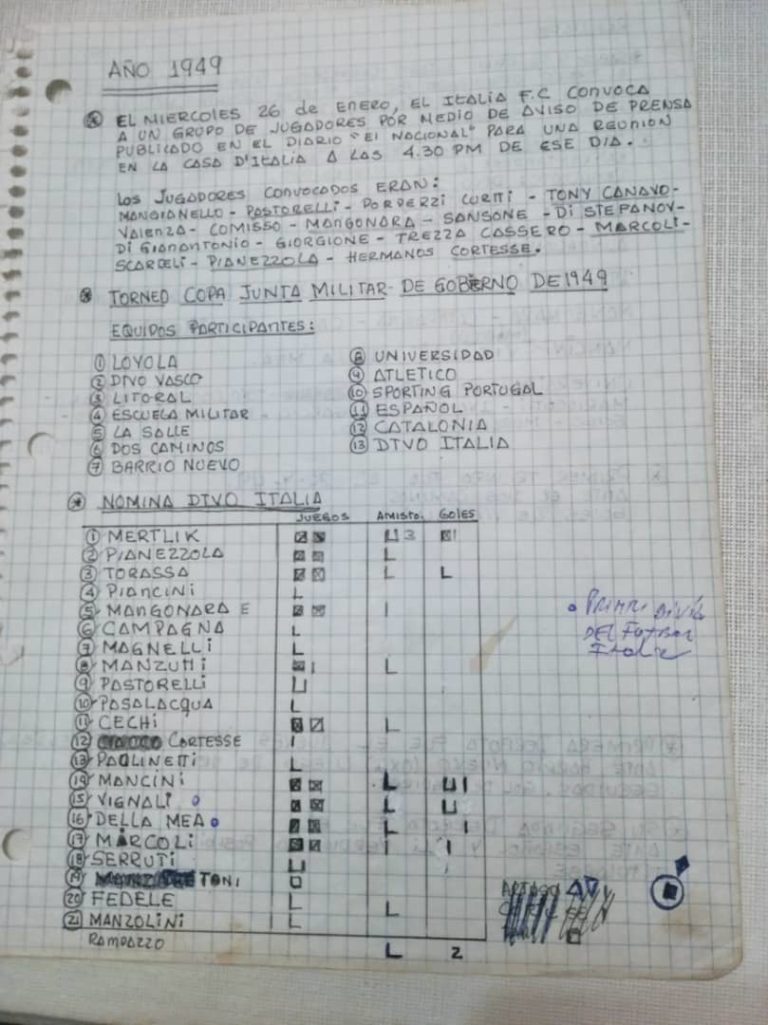 AÑO 1949
EL MIERCOLES 26 de ENERO, EL ITALIA F.C CONVOCA
A UN GRUPO DE JUGADORES POR MEDIO DE AVISO DE PRENSA
PUBLICADO EN EL DIARIO "El NACIONAL" PARA UNA REUNION
EN LA CASA D'ITALIA A LAS 4.30 PM DE ESE DIA.
LOS JUGADORES CONVOCADOS ERAN:
MANGIANELLO - PASTORELLI - PORDERZI CURTTI - TONY CANAVO -
VALENZA - COMISSO - MANGONARA - SANSONE - DI STEPANOV -
DI GIANANTONIO - GIORGIONE - TREZZA CASSERO - MARCOLI -
SCARDELI - PIANEZZOLA - HERMANOS CORTESSE.
TORNEO COPA JUNTA MILITAR DE GOBIERNO DE 1949
EQUIPOS PARTICIPANTES:
1 LOYOLA
2 DTVO VASCO
3 LITORAL
4 ESCUELA MILITAR
5 LA SALLE
6 DOS CAMINOS
7 BARRIO NUEVO
8 UNIVERSIDAD
9 ATLETICO
10 SPORTING PORTUGAL
11 ESPAÑOL
12 CATALONIA
13 DTVO ITALIA
NOMINA DTVO ITALIA
JUEGOS AMISTO. GOLES
1 MERTLIK 3
2 PIANEZZOLA
3 TORASSA
4 PIANCINI
5 MANGONARA E
6 CAMPAGNA
7 MAGNELLI
8 MANZUTTI
9 PASTORELLI
10 PASALACQUA
11 CECHI
12 CORTESSE
13 PAOLINETTI
14 MANCINI
15 VIGNALI
16 DELLA MEA
17 MARCOLI
18 SERRUTI
19 TONI
20 FEDELE
21 MANZOLINI
RAMPAZZO 2
DEL FUTBOL